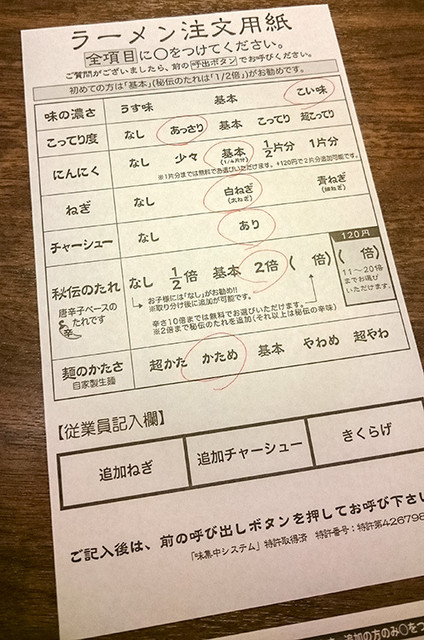 ラーメン注文用紙
全項目に○をつけてください。
ご質問がございましたら、前の呼出ボタンでお呼びください。
初めての方は「基本」(秘伝のたれは「1/2倍」)がお勧めです。
味の濃さ うす味 基本 こい味
こってり度 なし あっさり 基本 こってり 超こってり
にんにく なし 少々 基本 1/2片分 1片分
(1/4片分)
※1片分までは無料でお選びいただけます。+120円で2片分追加可能です。
ねぎ なし 白ねぎ 青ねぎ
(太ねぎ) (細ねぎ)
チャーシュー なし あり
120円
秘伝のたれ なし 1/2倍 基本 2倍 ( 倍) ( 倍)
唐辛子ベースの
たれです
辛
お子様には「なし」がお勧め!!
※取り分け後に追加が可能です。
11〜20倍
までお選び
いただけます。
辛さ10倍までは無料でお選びいただけます。
※2倍まで秘伝のたれを追加(それ以上は秘伝の辛味)
麺のかたさ 超かた かため 基本 やわめ 超やわ
自家製生麺
【従業員記入欄】
追加ねぎ 追加チャーシュー きくらげ
ご記入後は、前の呼び出しボタンを押してお呼び下さい
「味集中システム」特許取得済 特許番号:特許第426798
追加の方のみ○をつ